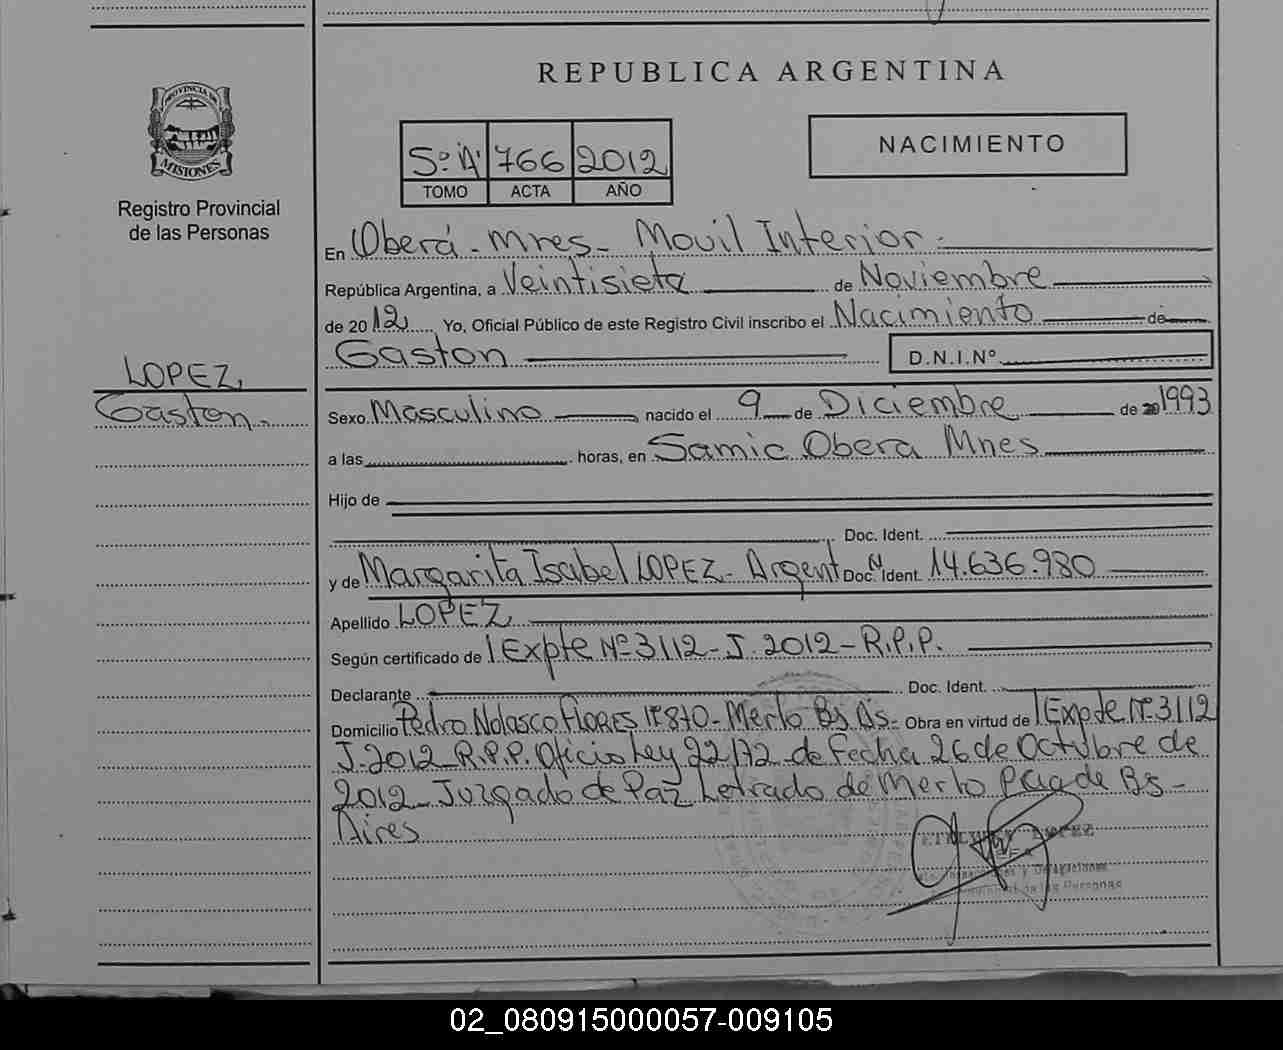 REPUBLICA ARGENTINA
PROVINCIA DE
MISIONES
Registro Provincial
de las Personas
5º "A" 766 2012
TOMO ACTA AÑO
NACIMIENTO
En Oberá - Mnes - Movil Interior -
República Argentina, a Veintisiete de Noviembre
de 2012 Yo, Oficial Público de este Registro Civil inscribo el Nacimiento de
Gaston D.N.I.Nº
LOPEZ
Gaston.
Sexo Masculino nacido el 9 de Diciembre de 1993
a las horas, en Samic Obera Mnes
Hijo de
Doc. Ident.
y de Margarita Isabel LOPEZ - Argent Doc. Ident. N 14.636.980
Apellido LOPEZ
Según certificado de Expte Nº 3112 - J. 2012 - R.P.P.
Declarante Doc. Ident.
Domicilio Pedro Nolasco FLORES Nº 870 - Merlo Bs As - Obra en virtud de Expte Nº 3112
J-2012 - R.P.P. Oficio Ley 22172 de Fecha 26 de Octubre de
2012 - Juzgado de Paz Letrado de Merlo Pcia de Bs -
Aires
LOPEZ
y Delegaciones
de las Personas
02_080915000057-009105